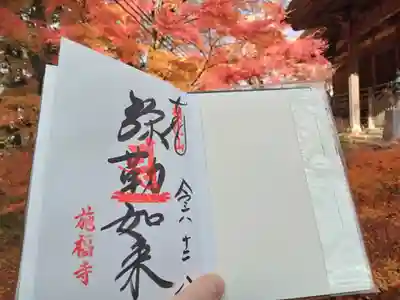 奉拝
令和六 十二 八
弥勒如来
施福寺